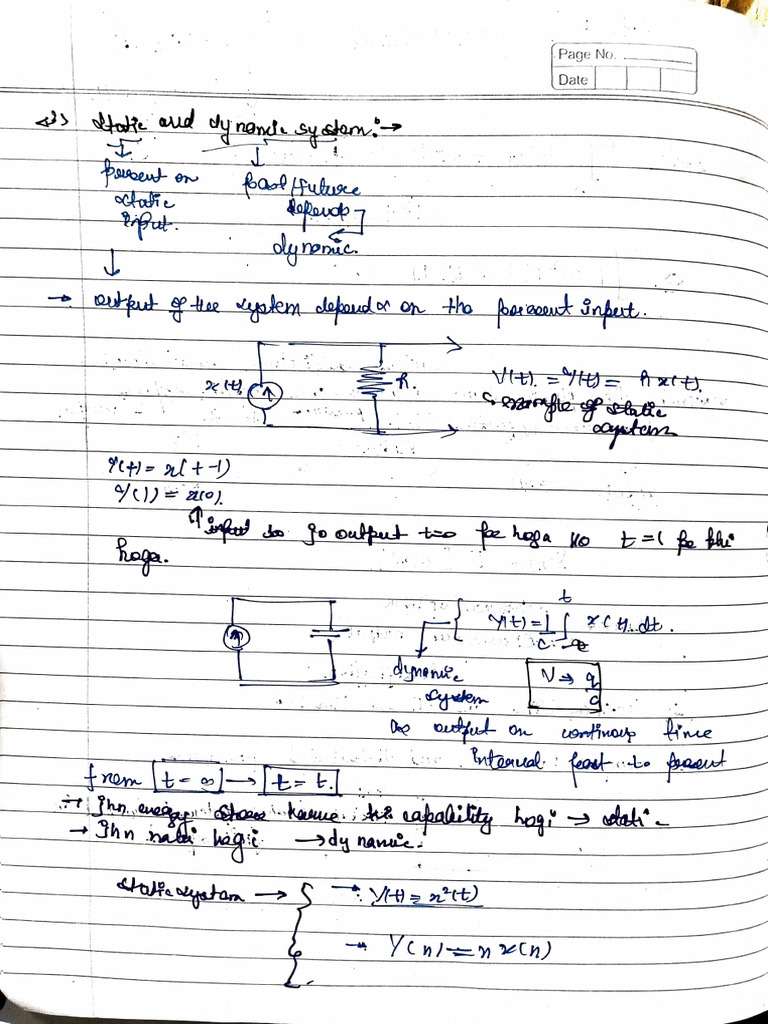 Page No.
Date
Static and dynamic system:→
present on static input.
past/future depends
dynamic.
→ output of the system depends on the present input.
x(t) R. V(t). = y(t) = R x(t).
example of static system
y(t) = x(t-1)
y(1) = x(0).
↑ input so jo output t=0 pe hoga wo t=1 pe bhi
hoga.
y(t) = 1/C ∫ x(t).dt.
t
-∞
dynamic system
V → q/c.
as output on continous time
Interval: past to present
from t = ∞ → t = t.
→ Jhn energy store karne ki capability hogi → stati-
→ Jhn nahi hogi → dynamic.
Static system → → y(t) = x²(t)
→ Y(n) = n x(n)